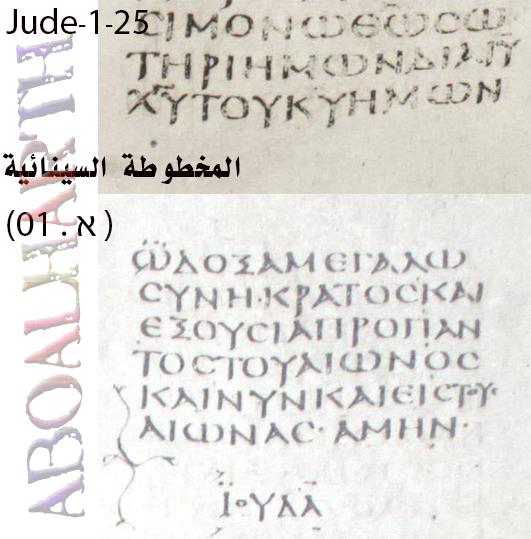 Jude-1-25
CΙΜΟΝΩΘΩCΩ
ΤΗΡΙΗΜΩΝΔΙΑΙΥ
ΧΥΤΟΥΚΥΗΜΩΝ
المخطوطة السينائية
(א . 01)
ΩΔΟΞΑΜΕΓΑΛΩ
CΥΝΗ·ΚΡΑΤΟC·ΚΑΙ
ΕΞΟΥCΙΑΠΡΟΠΑΝ
ΤΟCΤΟΥΑΙΩΝΟC
ΚΑΙΝΥΝΚΑΙΕΙCΤΟΥ·
ΑΙΩΝΑC· ΑΜΗΝ·
ΙΟΥΔΑ
ABOALHARTH